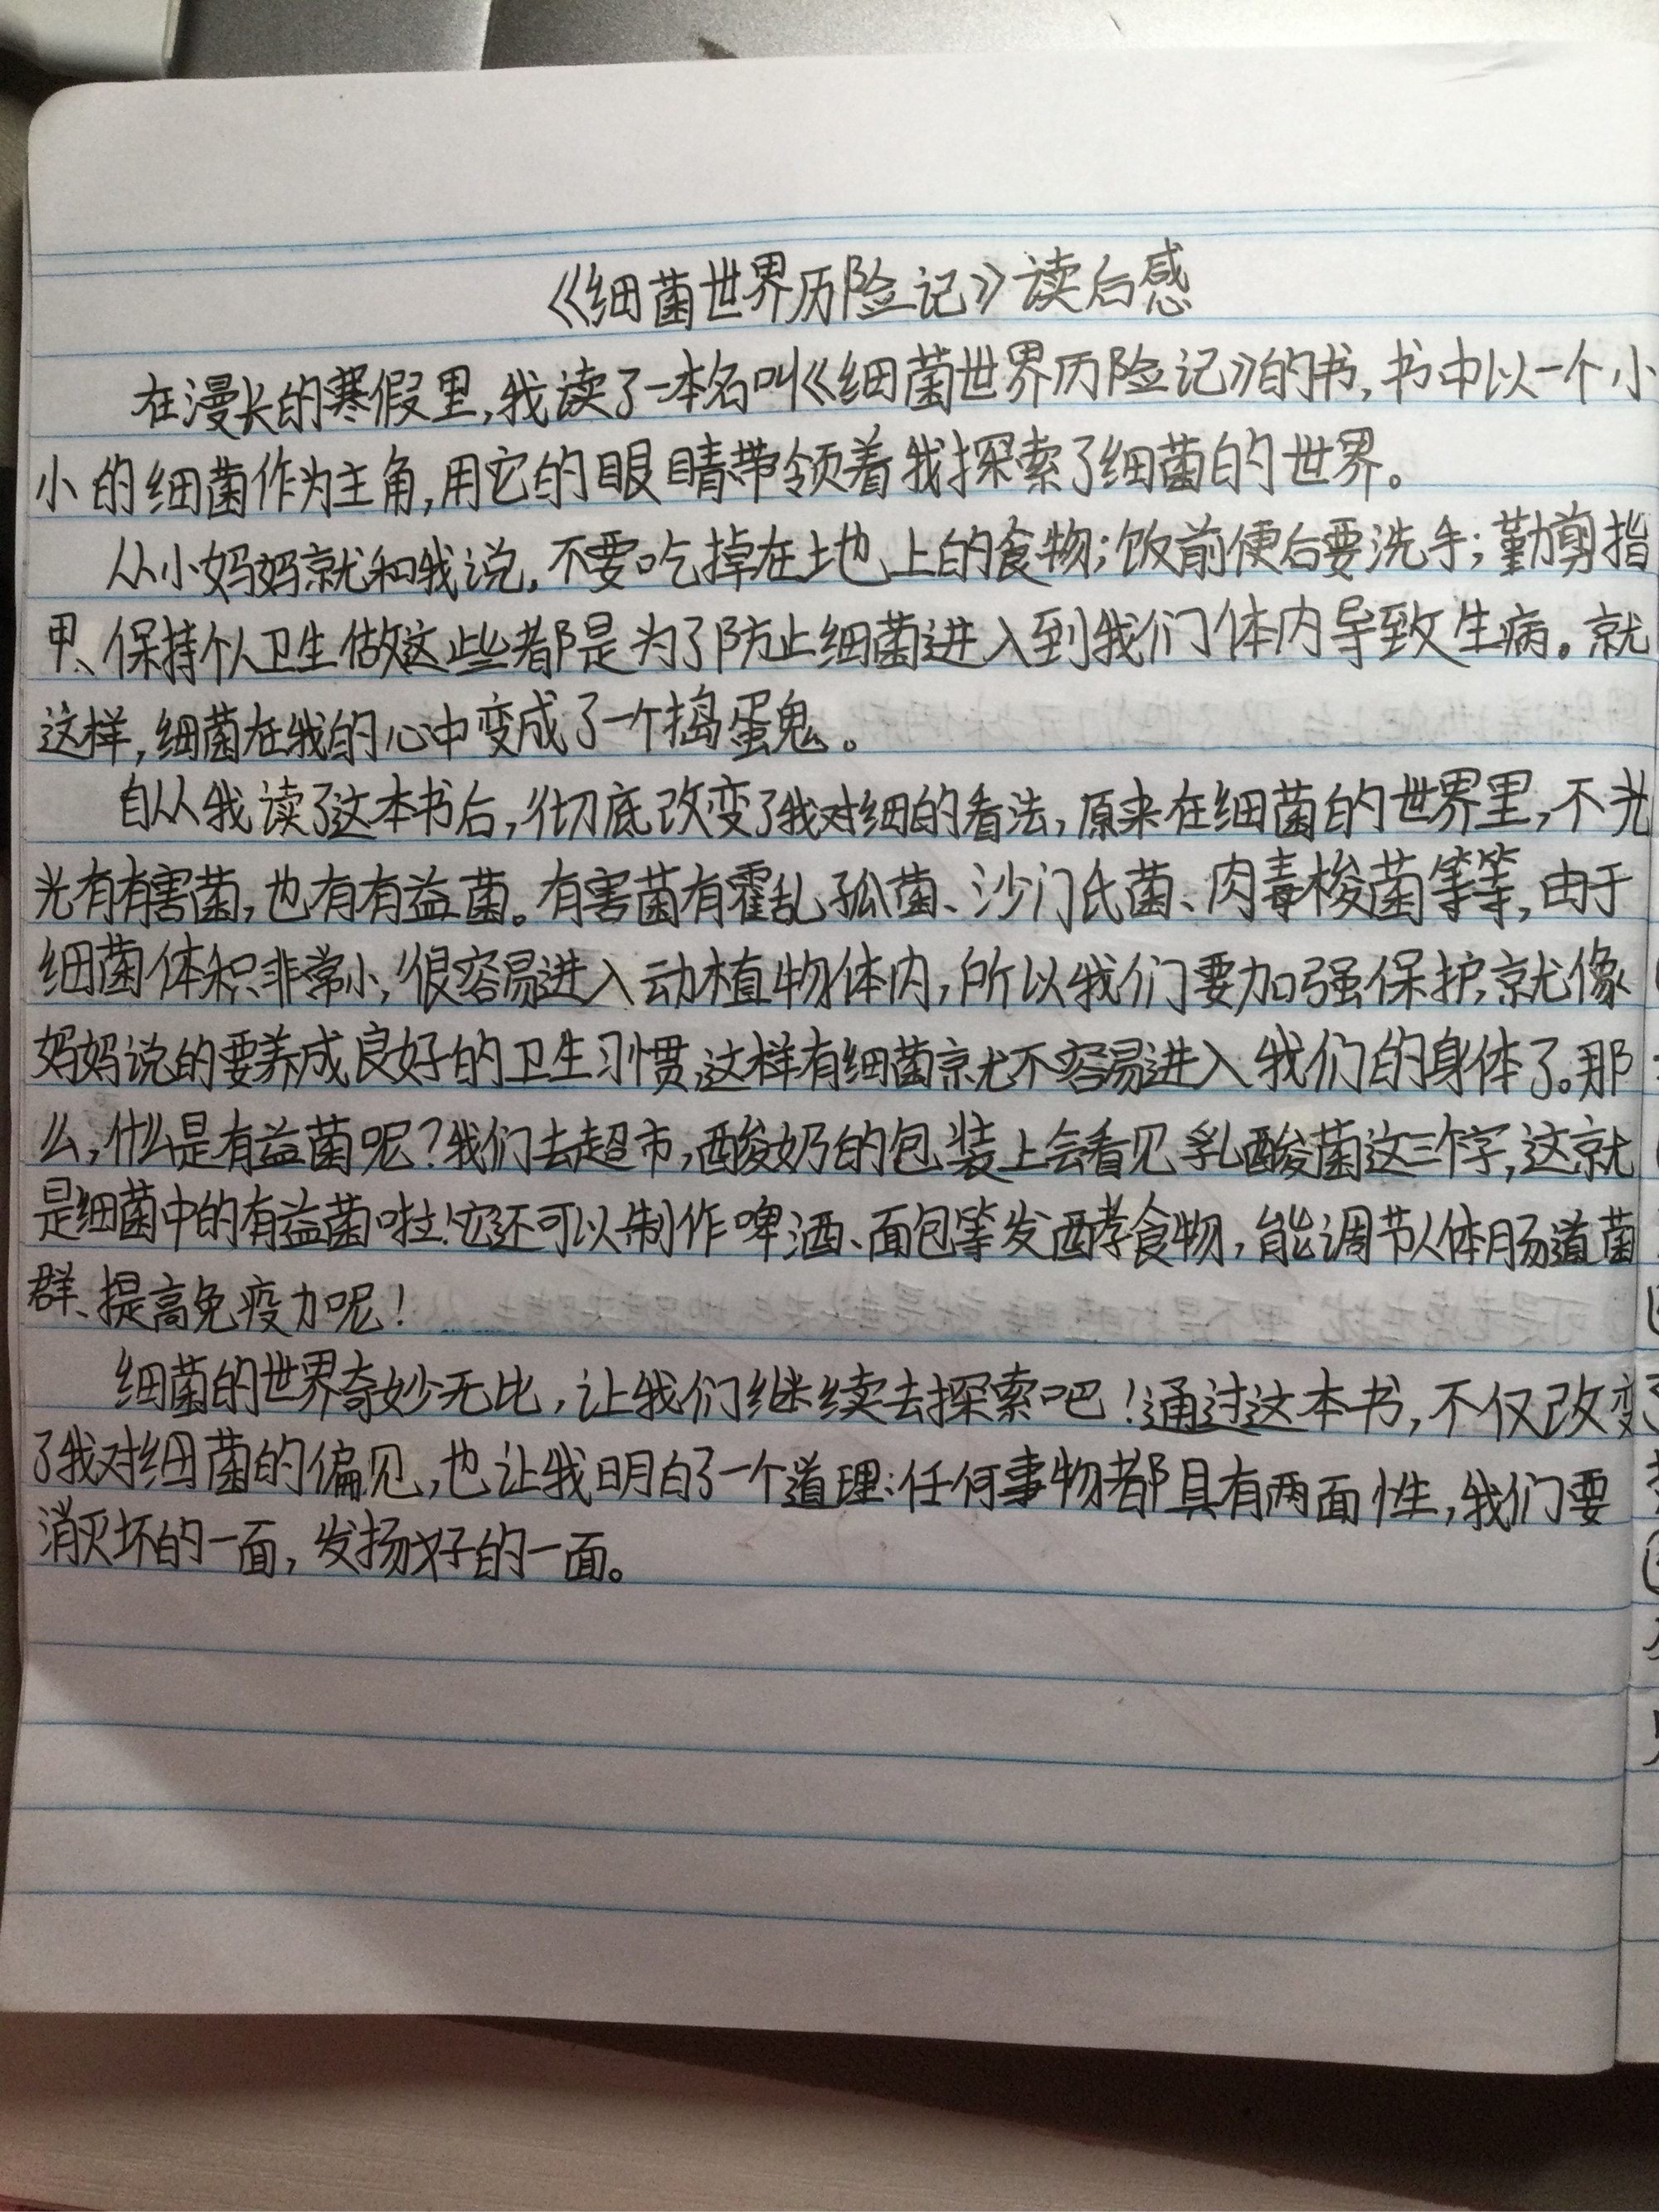 《细菌世界历险记》读后感
在漫长的寒假里,我读了一本名叫《细菌世界历险记》的书,书中以一个小
小的细菌作为主角,用它的眼睛带领着我探索了细菌的世界。
从小妈妈就和我说,不要吃掉在土地上的食物;饭前便后要洗手;勤剪指
甲、保持个人卫生做这些都是为了防止细菌进入到我们体内导致生病。就
这样,细菌在我的心中变成了一个捣蛋鬼。
自从我读了这本书后,彻底改变了我对细的看法,原来在细菌的世界里,不光
光有有害菌,也有有益菌。有害菌有霍乱弧菌、沙门氏菌、肉毒梭菌等等,由于
细菌体积非常小,很容易进入动植物体内,所以我们要加强保护,就像
妈妈说的要养成良好的卫生习惯,这样有细菌就不容易进入我们的身体了。那
么,什么是有益菌呢?我们去超市,酸奶的包装上会看见乳酸菌这三个字,这就
是细菌中的有益菌啦!它还可以制作啤酒、面包等发酵食物,能调节人体肠道菌
群、提高免疫力呢!
细菌的世界奇妙无比,让我们继续去探索吧!通过这本书,不仅改变
了我对细菌的偏见,也让我明白了一个道理:任何事物都具有两面性,我们要
消灭坏的一面,发扬好的一面。